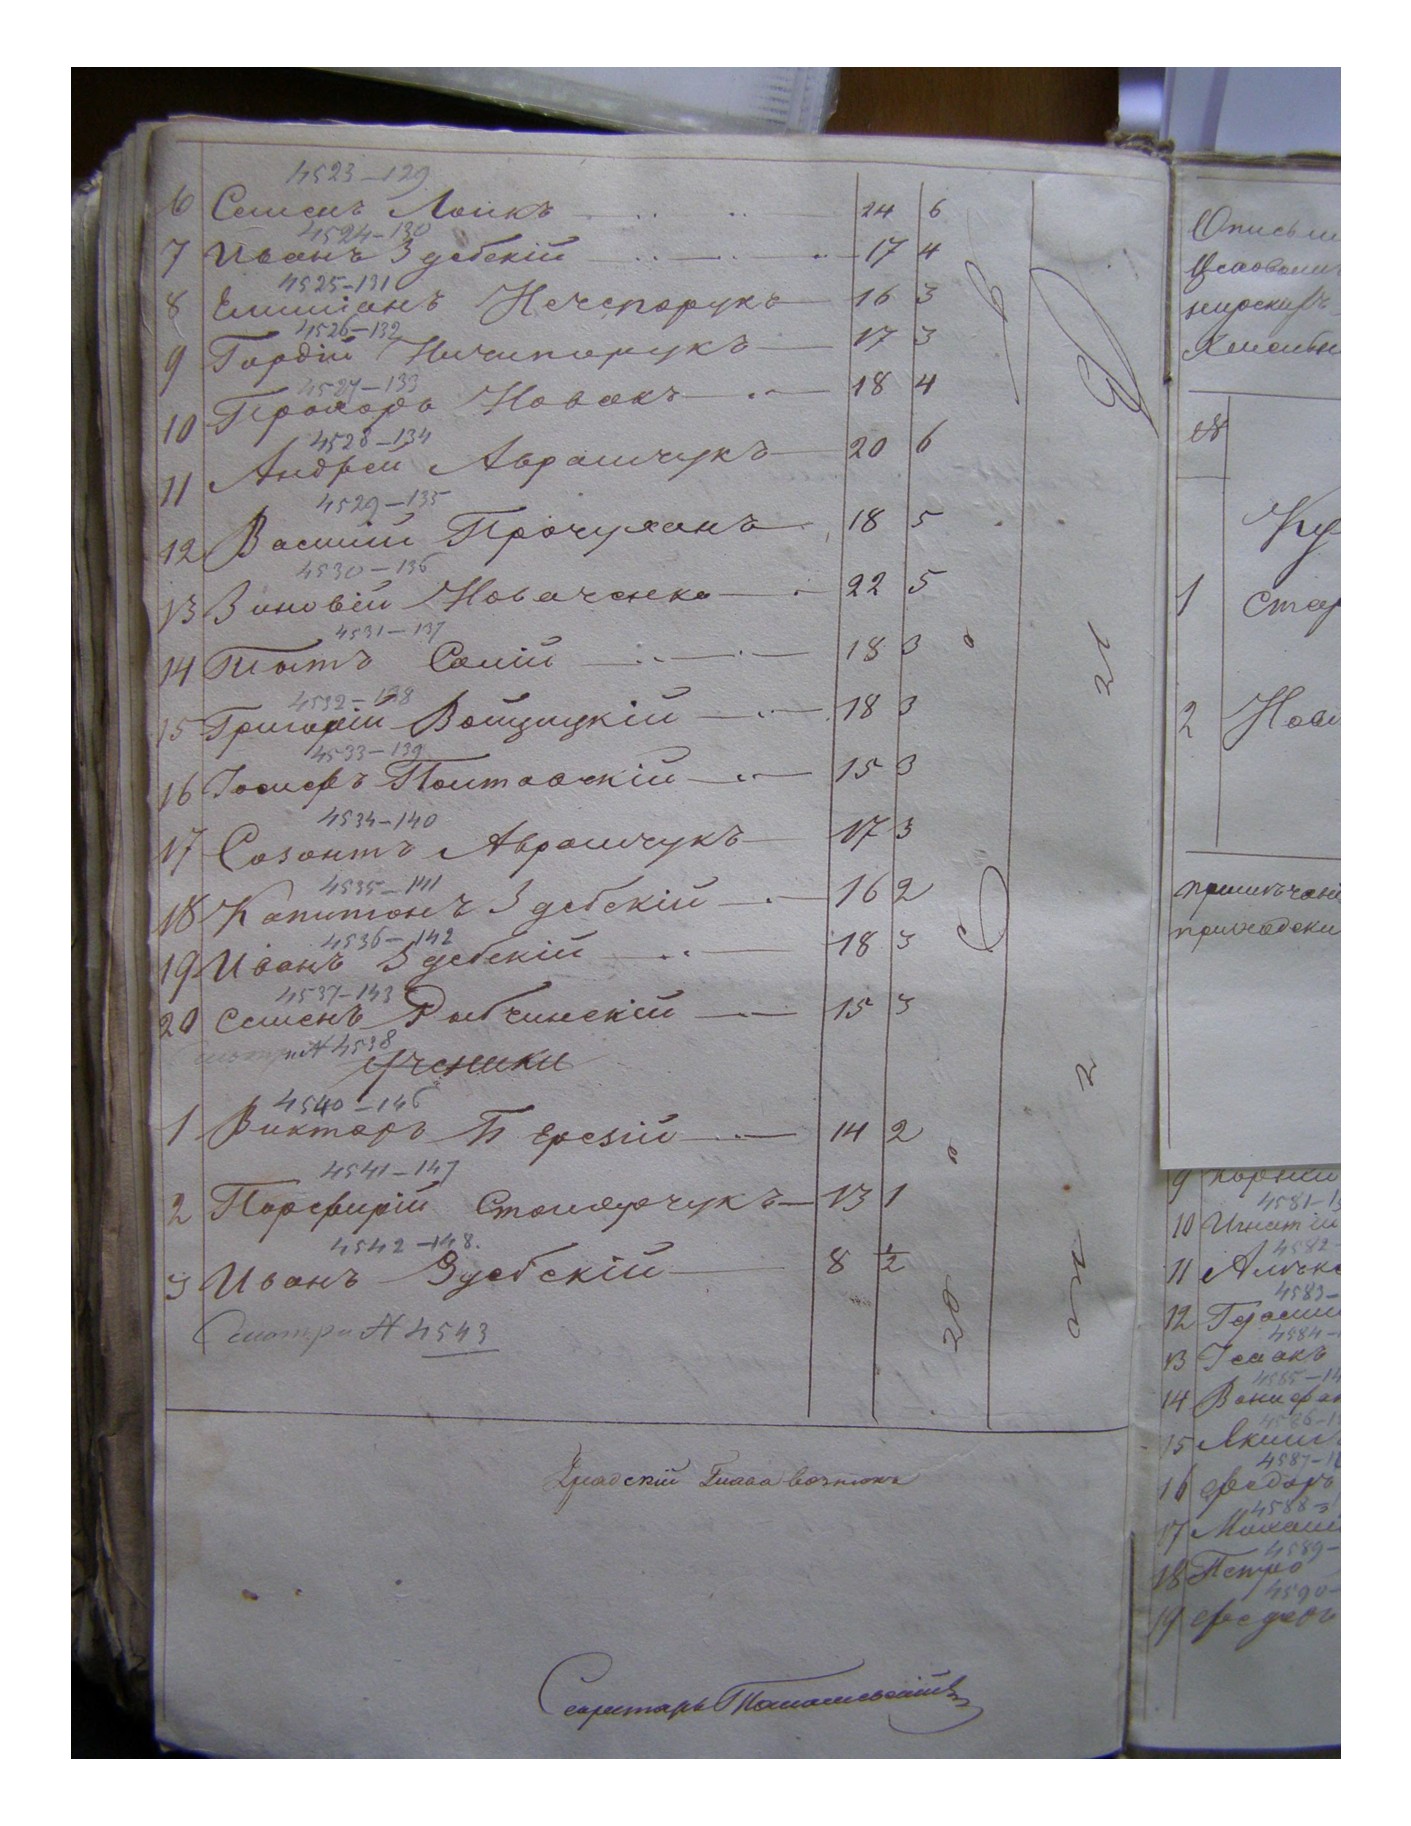 4523-129
6 Семенъ Лоикъ 24 6
4524-130
7 Иванъ Здебскій 17 4
4525-131
8 Емиліанъ Нечепорукъ 16 3
4526-132
9 Гордій Ничипорукъ 17 3
4527-133
10 Прохоръ Новакъ 18 4
4528-134
11 Андрей Аврамчукъ 20 6
4529-135
12 Василій Прочуханъ 18 5
4530-136
13 Зиновій Новаченко 22 5
4531-137
14 Титъ Солій 18 3
4532-138
15 Григорій Войцицкій 18 3
4533-139
16 Іосифъ Полтавскій 15 3
4534-140
17 Созонтъ Аврамчукъ 17 3
4535-141
18 Капитонъ Здебскій 16 2
4536-142
19 Иванъ Здебскій 18 3
4537-143
20 Семенъ Рыбчинскій 15 3
Смотри № 4538
Ученики
4540-146
1 Викторъ Березій 14 2
4541-147
2 Порфирій Столярчукъ 13 1
4542-148.
3 Иванъ Здебскій 8 1/2
Смотри № 4543
Градскій Глава
Секретарь
Опись
№
1
2 Нов
9
4581-1
10 Игнатій
4582-
11
4583-
12 Герасим
4584-
13 Ісаакъ
4585-14
14 Вониф
4586-1
15 Яким
4587-1
16 Федоръ
4588-
17 Михаил
4589-
18 Петро
4590-
19 Федоръ